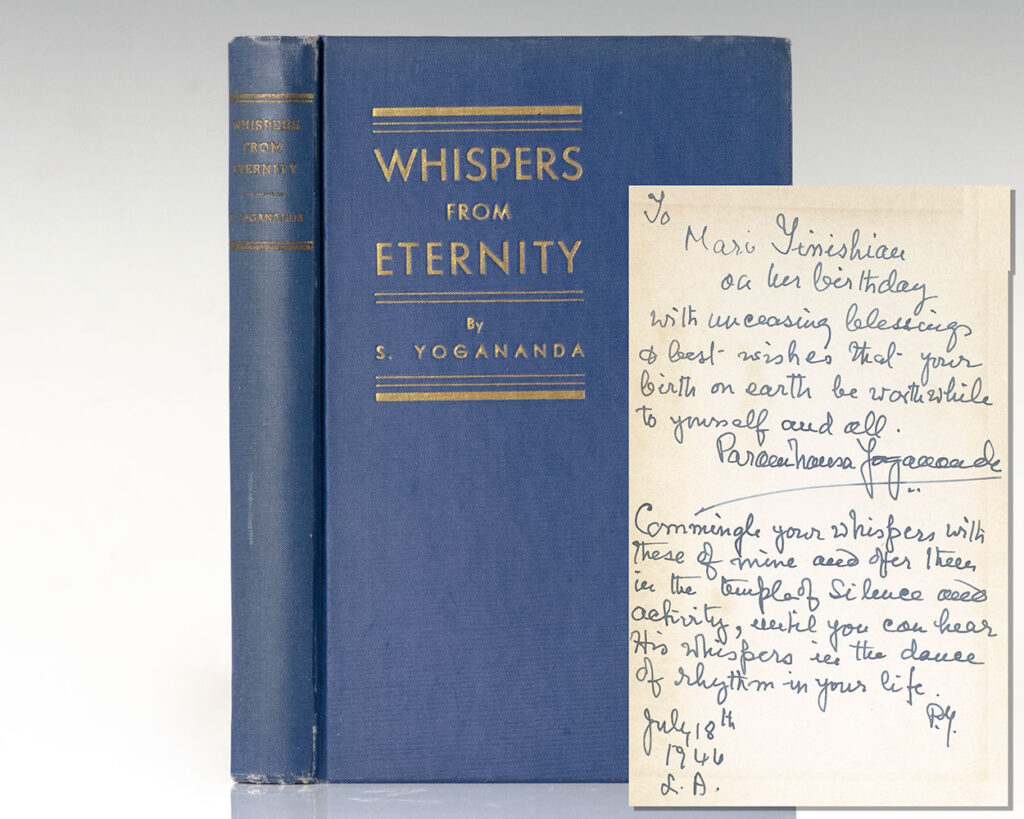 WHISPERS
FROM
ETERNITY
S. YOGANANDA
WHISPERS
FROM
ETERNITY
By
S. YOGANANDA
To
Mari Tinishian
on her birthday
with unceasing blessings
& best wishes that your
birth on earth be worthwhile
to yourself and all.
Paramhansa Yogananda
Commingle your whispers with
these of mine and offer them
in the temple of silence and
activity, until you can hear
His whispers in the dance
of rhythm in your life.
P.Y.
July 18th
1946
L.A.